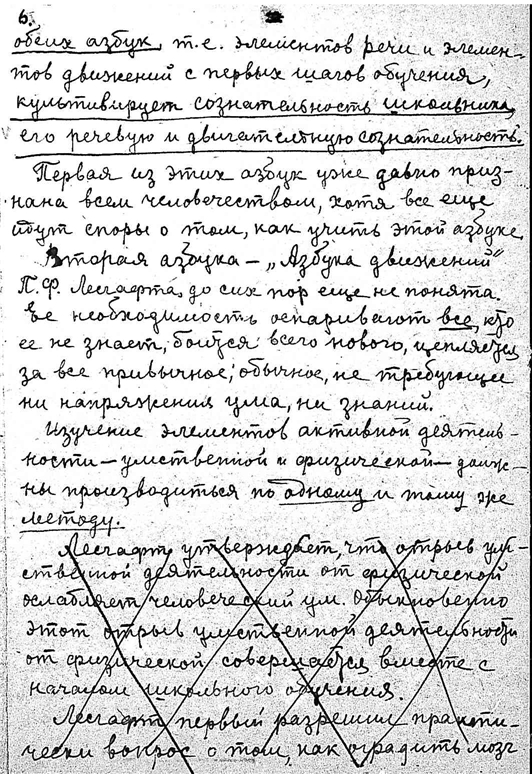 6.
обеих азбук, т.е. элементов речи и элемен-
тов движений с первых шагов обучения,
культивирует сознательность школьника,
его речевую и двигательную сознательность.
Первая из этих азбук уже давно приз-
нана всем человечеством, хотя все еще
идут споры о том, как учить этой азбуке
Вторая азбука – „Азбука движений"
П.Ф. Лесгафта, до сих пор еще не понята.
Ее необходимость оспаривают все, кто
ее не знает, боится всего нового, цепляется
за все привычное, обычное, не требующее
ни напряжения ума, ни знаний.
Изучение элементов активной деятель-
ности – умственной и физической – долж-
ны производиться по одному и тому же
методу.
Лесгафт утверждает, что отрыв ум-
ственной деятельности от физической
ослабляет человеческий ум. Обыкновенно
этот отрыв умственной деятельности
от физической совершается вместе с
началом школьного обучения.
Лесгафт первый разрешил практи-
чески вопрос о том, как оградить мозг